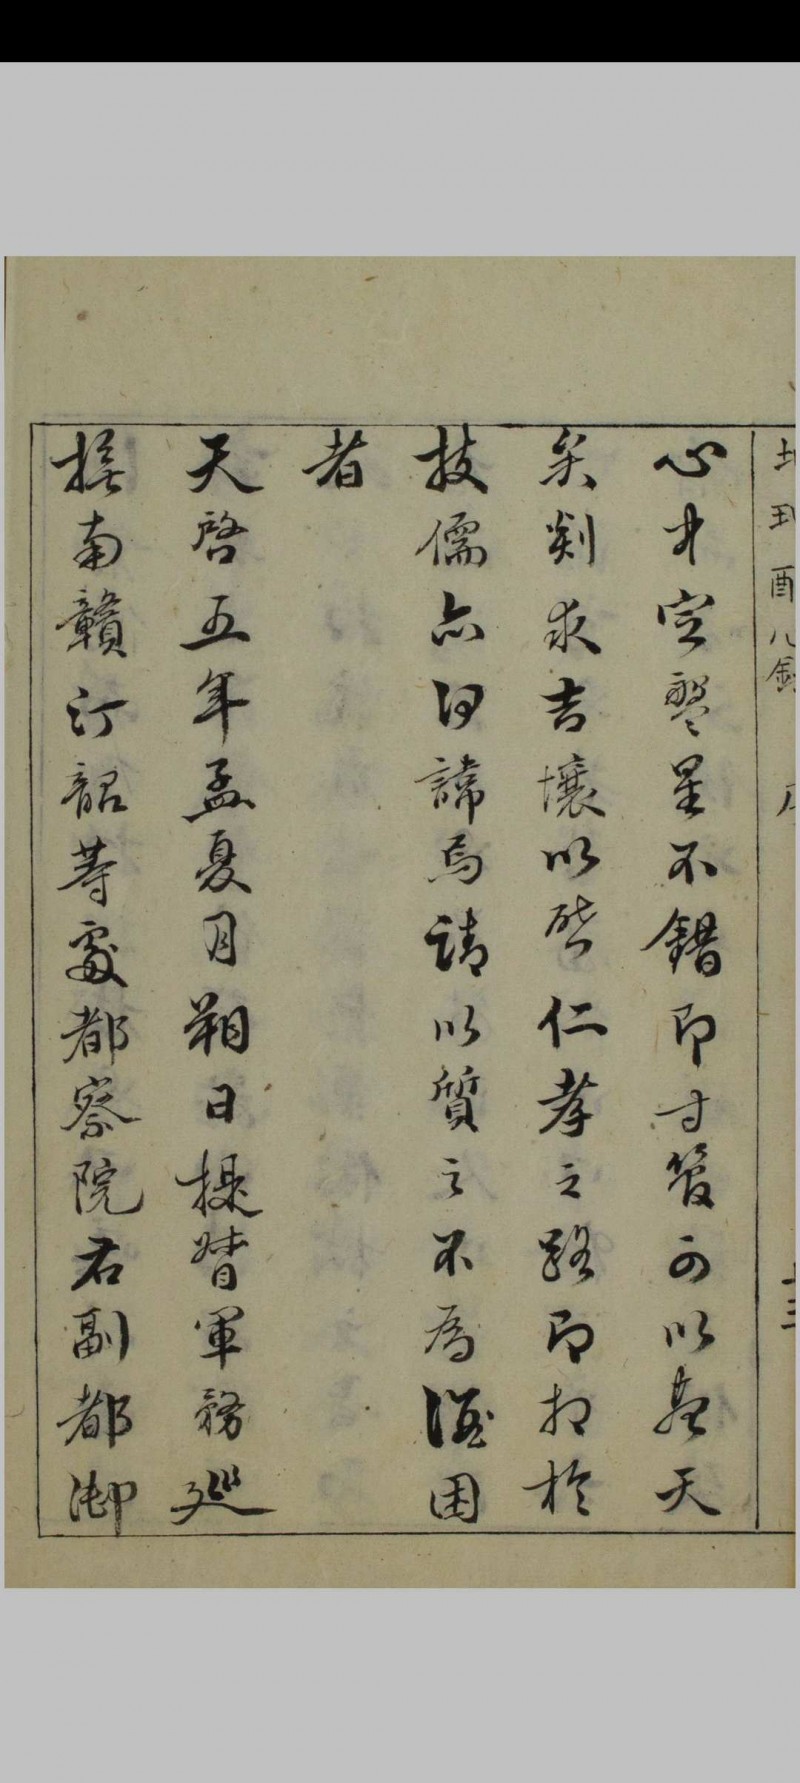 心中定盤星不錯即寸管可以天
矣剡求吉壤以啓仁孝之路即於
技儒亦何諱焉請以質之不為酒困
者
天啓五年孟夏月朔日提督軍務巡
撫南贛汀韶等處都察院右副都御